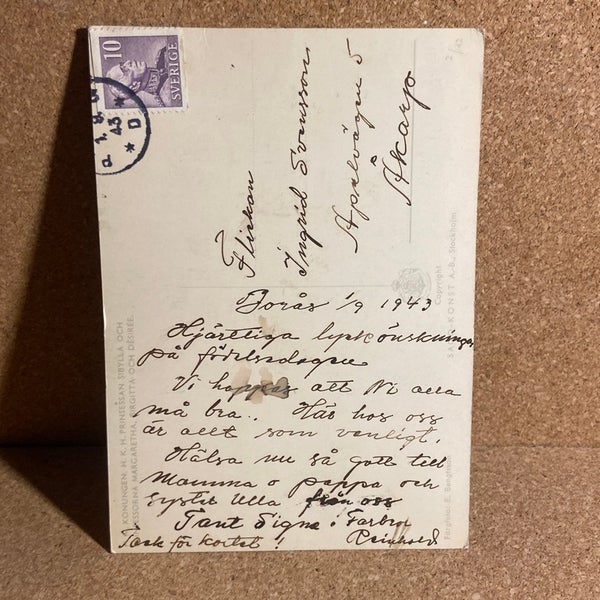 10
SVERIGE
43
D
Flickan
Ingrid Svensson
Apelvägen 5
Åkarp
Borås 1/9 1943
Hjärtliga lyckönskningar
på födelsedagen
Vi hoppas att Ni alla
må bra.. Här hos oss
är allt som vanligt.
Hälsa nu så gott till
Mamma o pappa och
syster Ulla från oss
Tant Signe i Farbror
Reinhold
Tack för kortet !
KONUNGEN, H. K. H. PRINSESSAN SIBYLLA OCH
MARGARETHA, BIRGITTA OCH DÉSIRÉE.
Copyright
KONST A.-B., Stockholm